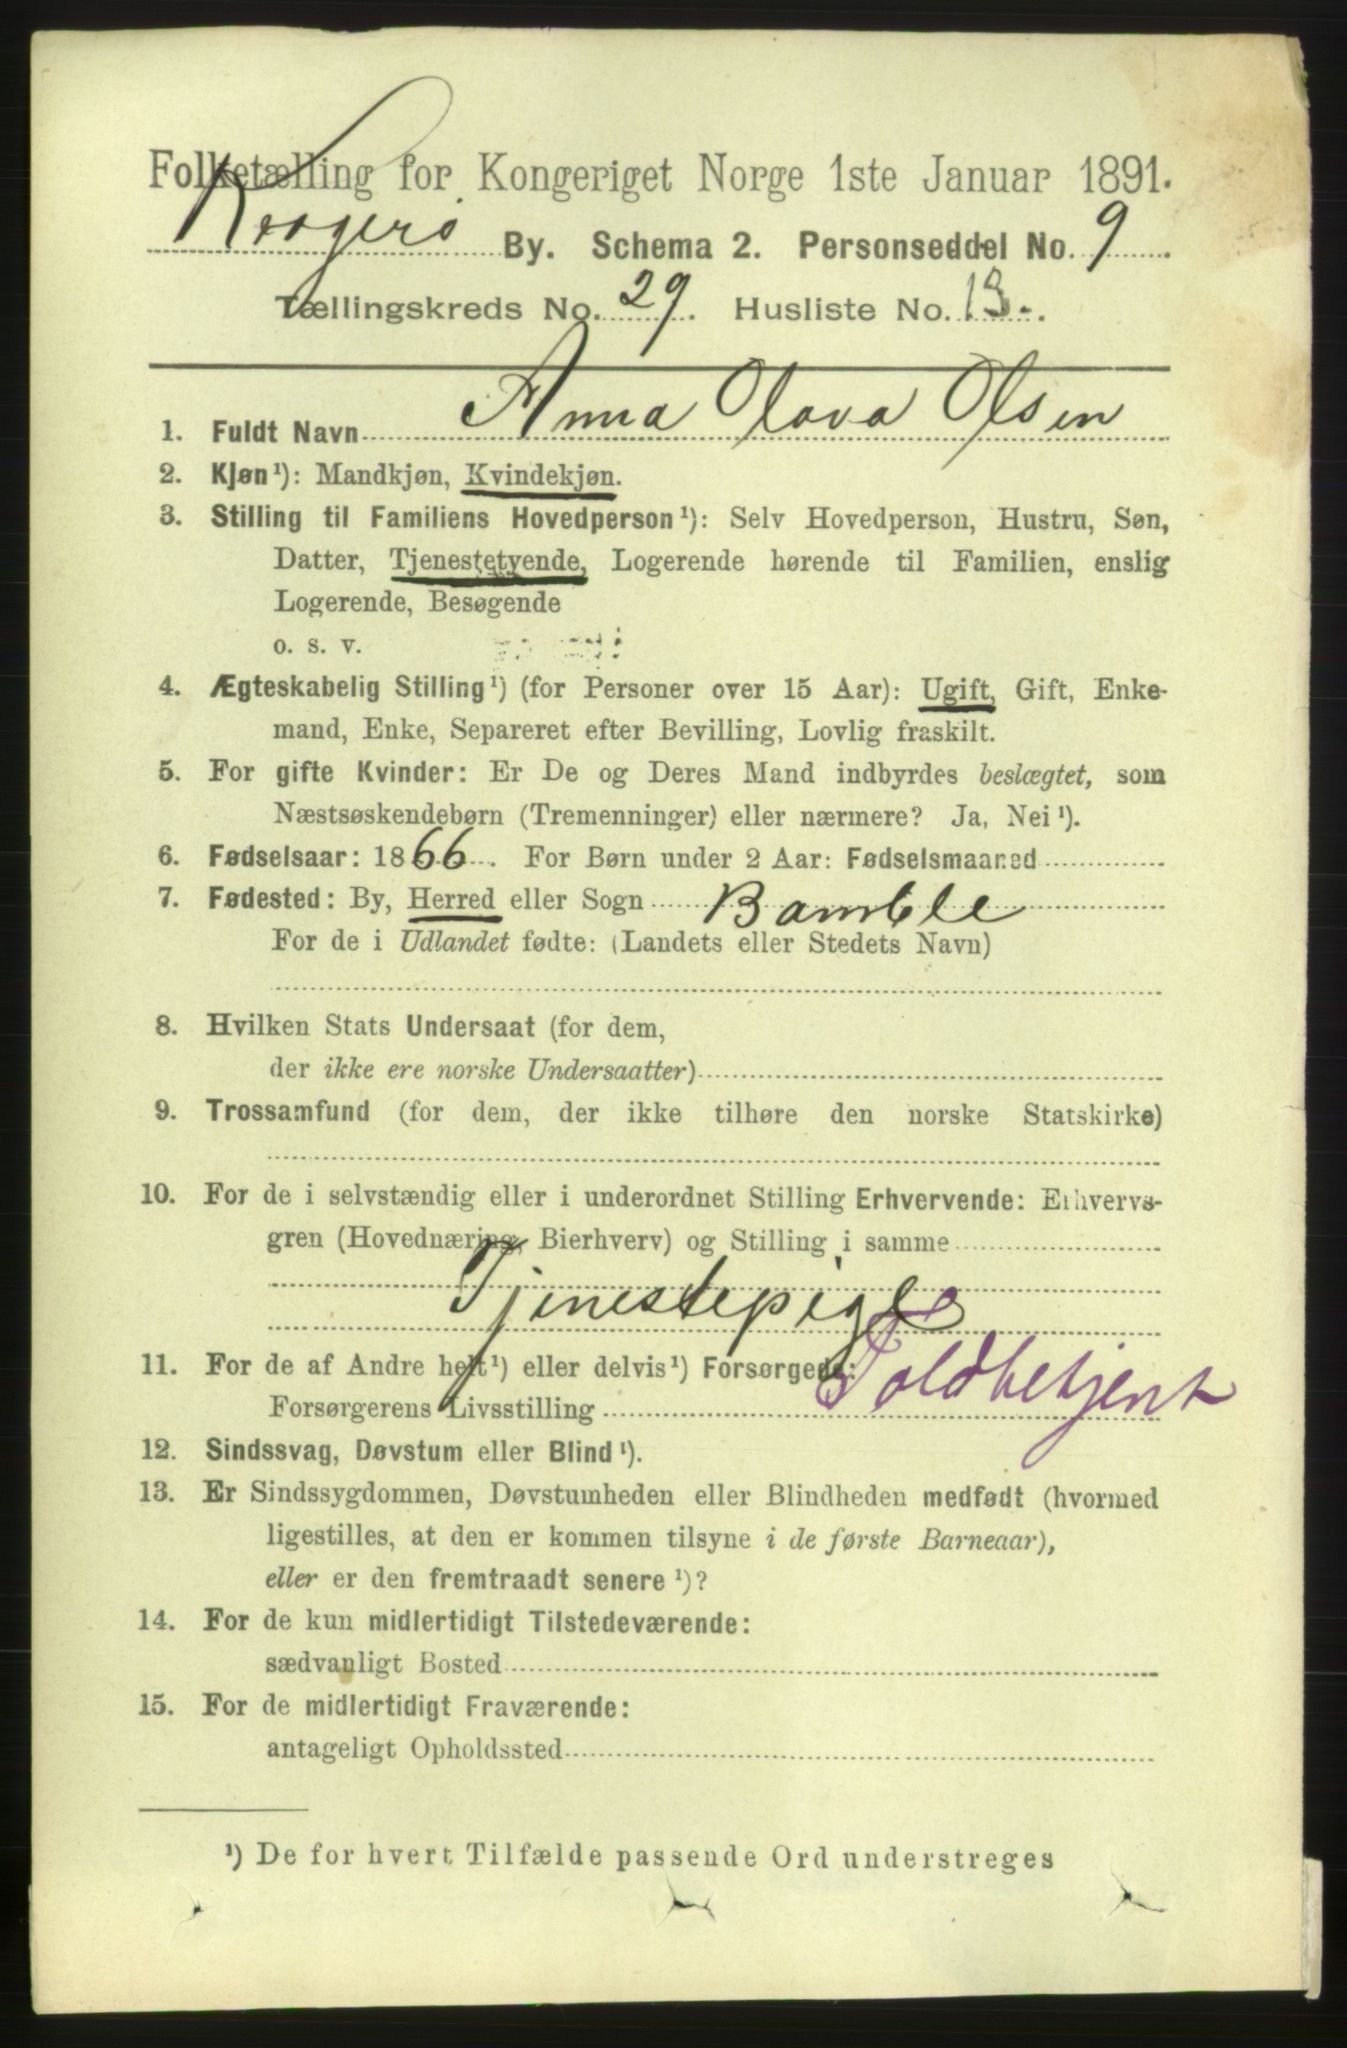 Folketælling for Kongeriget Norge 1ste Januar 1891.
Kragerø By. Schema 2. Personseddel No. 9.
Tællingskreds No. 29. Husliste No. 13.
1. Fuldt Navn Anna Olava Olsen
2. Kjøn¹): Mandkjøn, Kvindekjøn.
3. Stilling til Familiens Hovedperson¹): Selv Hovedperson, Hustru, Søn,
Datter, Tjenestetyende, Logerende hørende til Familien, enslig
Logerende, Besøgende
o. s. v.
4. Ægteskabelig Stilling¹) (for Personer over 15 Aar): Ugift, Gift, Enke-
mand, Enke, Separeret efter Bevilling, Lovlig fraskilt.
5. For gifte Kvinder: Er De og Deres Mand indbyrdes beslægtet, som
Næstsøskendebørn (Tremenninger) eller nærmere? Ja, Nei¹).
6. Fødselsaar: 1866. For Børn under 2 Aar: Fødselsmaaned
7. Fødested: By, Herred eller Sogn Bamble
For de i Udlandet fødte: (Landets eller Stedets Navn)
8. Hvilken Stats Undersaat (for dem,
der ikke ere norske Undersaatter)
9. Trossamfund (for dem, der ikke tilhøre den norske Statskirke)
10. For de i selvstændig eller i underordnet Stilling Erhvervende: Erhvervs-
gren (Hovednæring, Bierhverv) og Stilling i samme
Tjenestepige
11. For de af Andre helt¹) eller delvis¹) Forsørgede:
Forsørgerens Livsstilling Toldbetjent
12. Sindssvag, Døvstum eller Blind¹).
13. Er Sindssygdommen, Døvstumheden eller Blindheden medfødt (hvormed
ligestilles, at den er kommen tilsyne i de første Barneaar),
eller er den fremtraadt senere¹)?
14. For de kun midlertidigt Tilstedeværende:
sædvanligt Bosted
15. For de midlertidigt Fraværende:
antageligt Opholdssted
¹) De for hvert Tilfælde passende Ord understreges